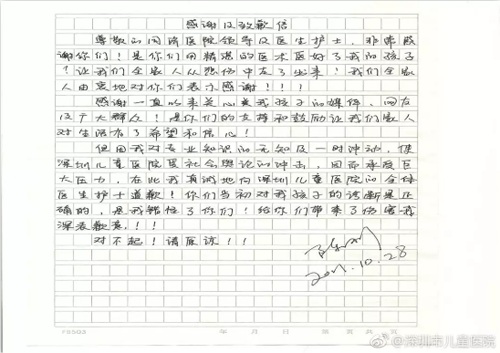 感谢及致歉信
尊敬的同济医院领导及医生护士，非常感
谢你们！是你们用精湛的医术医好了我的孩子
！让我们全家人从悲伤中走了出来！我们全家
人由衷地对你们表示感谢！！！
感谢一直以来关心关爱我孩子的媒体、网友
及广大群众！是你们的支持和鼓励让我们家人
对生活有了希望和信心！
但因我对专业知识的无知及一时冲动，使
深圳儿童医院受社会舆论的冲击，因而承受巨
大压力，在此我真诚地向深圳儿童医院的全体
医生护士道歉！你们当初对我孩子的诊断是正
确的，是我错怪了你们！给你们带来了伤害我
深表歉意！！
对不起！请原谅！！
2011.10.28
年 月 日
@深圳市儿童医院